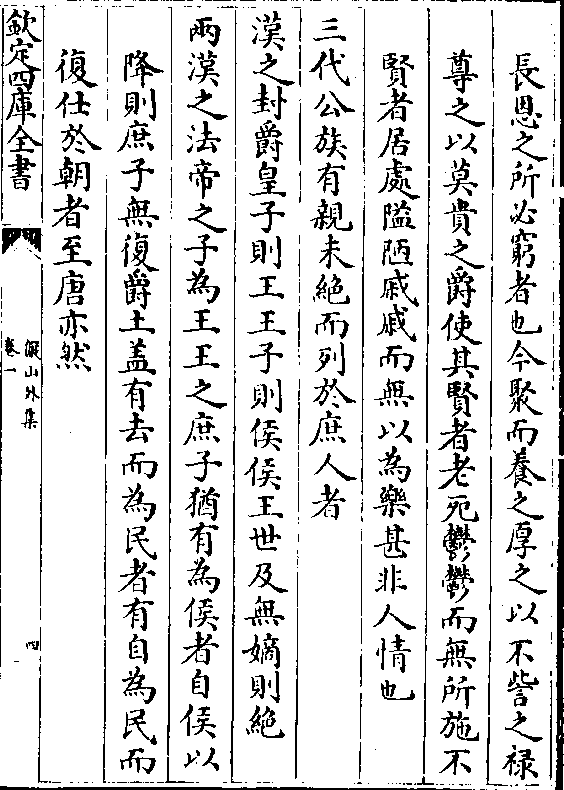 長恩之所必窮者也今聚而養之厚之以不訾之禄
尊之以莫貴之爵使其賢者老死鬱鬱而無所施不
賢者居處隘陋戚戚而無以為樂甚非人情也
三代公族有親未絶而列於庶人者
漢之封爵皇子則王王子則侯侯王世及無嫡則絶
兩漢之法帝之子為王王之庶子猶有為侯者自侯以
降則庶子無復爵土盖有去而為民者有自為民而
復仕於朝者至唐亦然
欽定四庫全書
儼山外集
卷一
四